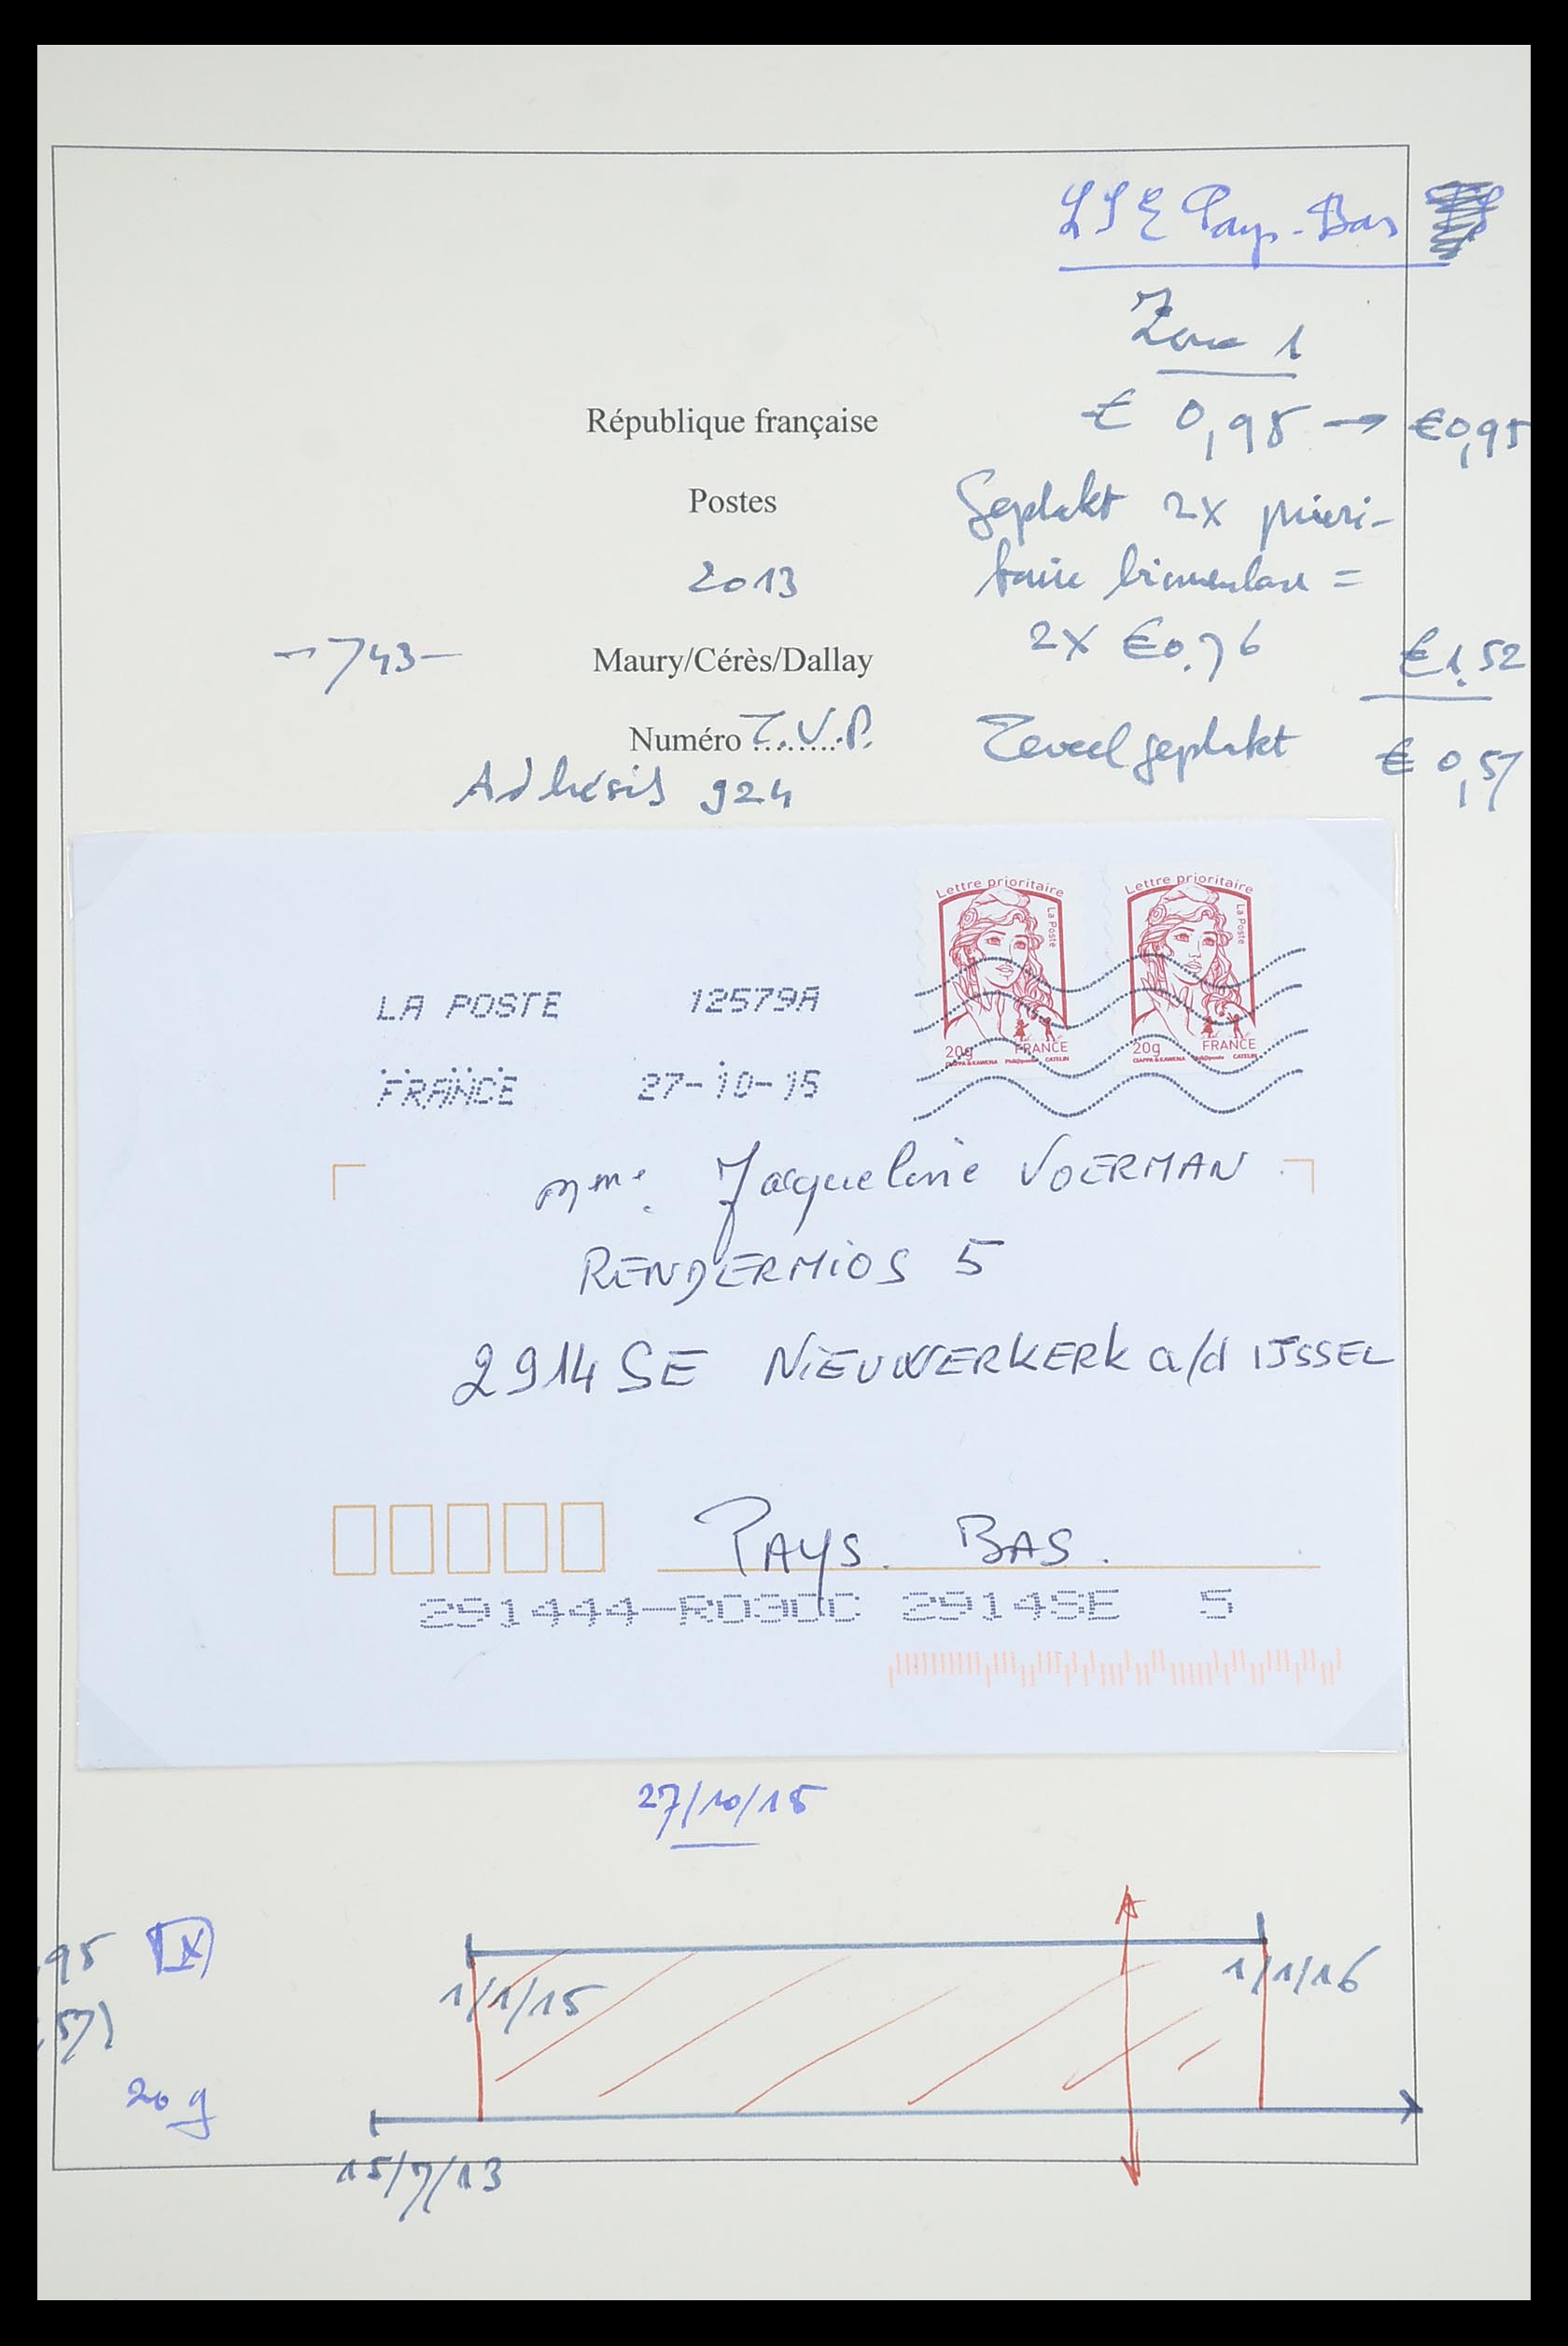 LSE Pays-Bas
Zone 1
République française
€ 0,95 → €0,95
Postes
Geplakt 2x priori-
2013
taire binnenland =
-743-
Maury/Cérès/Dallay
2X €0.76
€1.52
Numéro T.V.P.
Teveel geplakt
€ 0,57
Adhésif 924
Lettre prioritaire
La Poste
20g
FRANCE
CIAPPA & KAWENA Phil@poste CATELIN
Lettre prioritaire
La Poste
20g
FRANCE
CIAPPA & KAWENA Phil@poste CATELIN
LA POSTE 12579A
FRANCE 27-10-15
Mme. Jacqueline VOERMAN
RENDERMIOS 5
2914 SE NIEUWERKERK a/d IJSSEL
PAYS. BAS.
291444-RD3DD 2914SE 5
27/10/15
,95
1/1/15
1/1/16
,57)
20 g
15/7/13